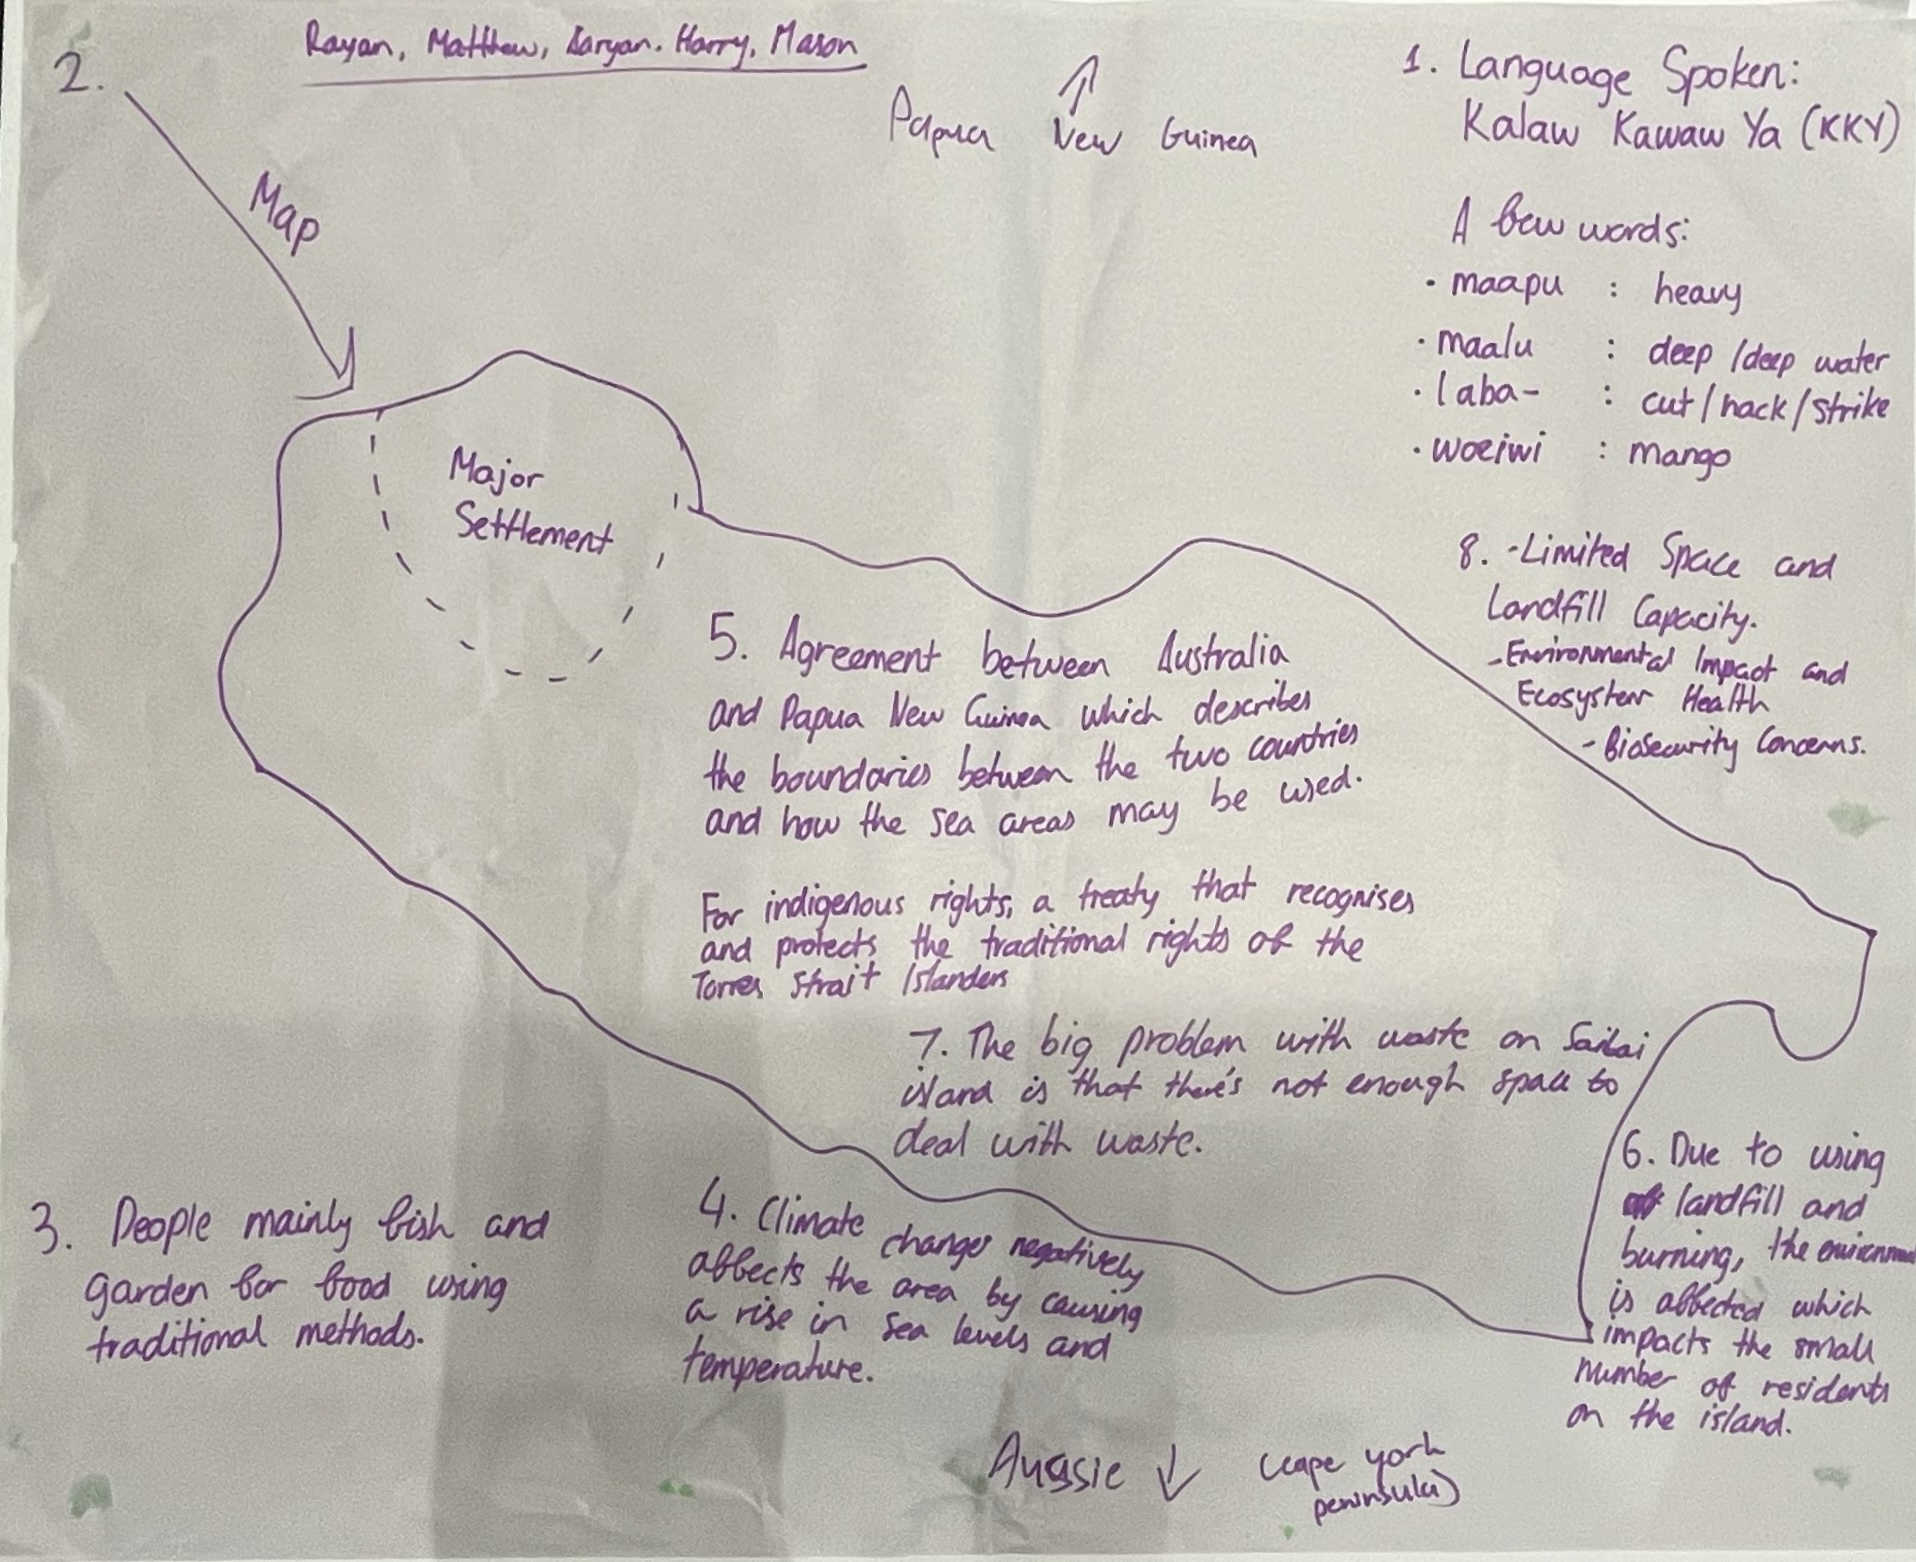 2.
Rayan, Matthew, Aaryan. Harry, Mason
Map
Papua New Guinea
1. Language Spoken:
Kalaw Kawaw Ya (KKY)
A few words:
· maapu : heavy
· maalu : deep /deep water
· laba- : cut/hack/strike
· woeiwi : mango
Major
Settlement
8. -Limited Space and
Landfill Capacity.
-Environmental Impact and
Ecosystem Health
- Biosecurity Concerns.
5. Agreement between Australia
and Papua New Guinea which describes
the boundaries between the two countries
and how the sea areas may be used.
For indigenous rights, a treaty that recognises
and protects the traditional rights of the
Torres Strait Islanders
7. The big problem with waste on Saibai
island is that there's not enough space to
deal with waste.
6. Due to using
landfill and
burning, the environment
is affected which
impacts the small
number of residents
on the island.
3. People mainly fish and
garden for food using
traditional methods.
4. Climate change negatively
affects the area by causing
a rise in sea levels and
temperature.
Aussie ↓ (cape york
peninsula)